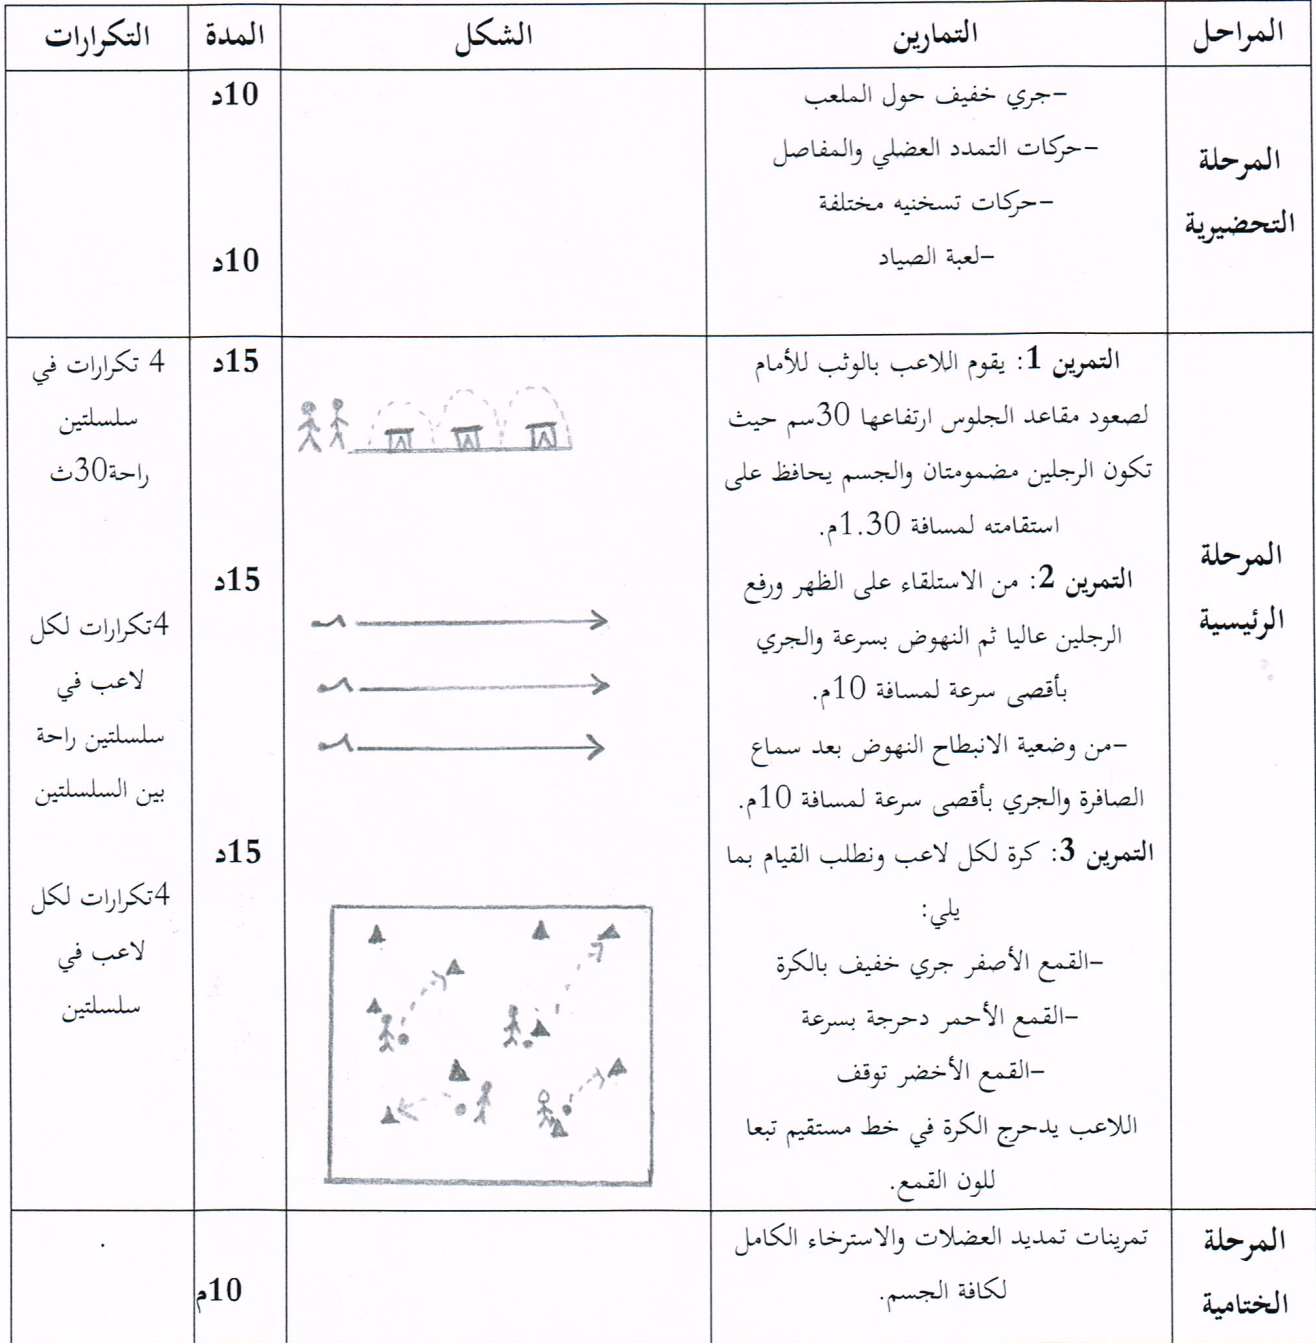 المراحل التمارين الشكل المدة التكرارات
المرحلة
التحضيرية
-جري خفيف حول الملعب
-حركات التمدد العضلي والمفاصل
-حركات تسخنيه مختلفة
-لعبة الصياد
10د
10د
المرحلة
الرئيسية
التمرين 1: يقوم اللاعب بالوثب للأمام
لصعود مقاعد الجلوس ارتفاعها 30سم حيث
تكون الرجلين مضمومتان والجسم يحافظ على
استقامته لمسافة 1.30م.
التمرين 2: من الاستلقاء على الظهر ورفع
الرجلين عاليا ثم النهوض بسرعة والجري
بأقصى سرعة لمسافة 10م.
-من وضعية الانبطاح النهوض بعد سماع
الصافرة والجري بأقصى سرعة لمسافة 10م.
التمرين 3: كرة لكل لاعب ونطلب القيام بما
يلي:
-القمع الأصفر جري خفيف بالكرة
-القمع الأحمر دحرجة بسرعة
-القمع الأخضر توقف
اللاعب يدحرج الكرة في خط مستقيم تبعا
للون القمع.
15د
15د
15د
4 تكرارات في
سلسلتين
راحة30ث
4تكرارات لكل
لاعب في
سلسلتين راحة
بين السلسلتين
4تكرارات لكل
لاعب في
سلسلتين
المرحلة
الختامية
تمرينات تمديد العضلات والاسترخاء الكامل
لكافة الجسم.
10م